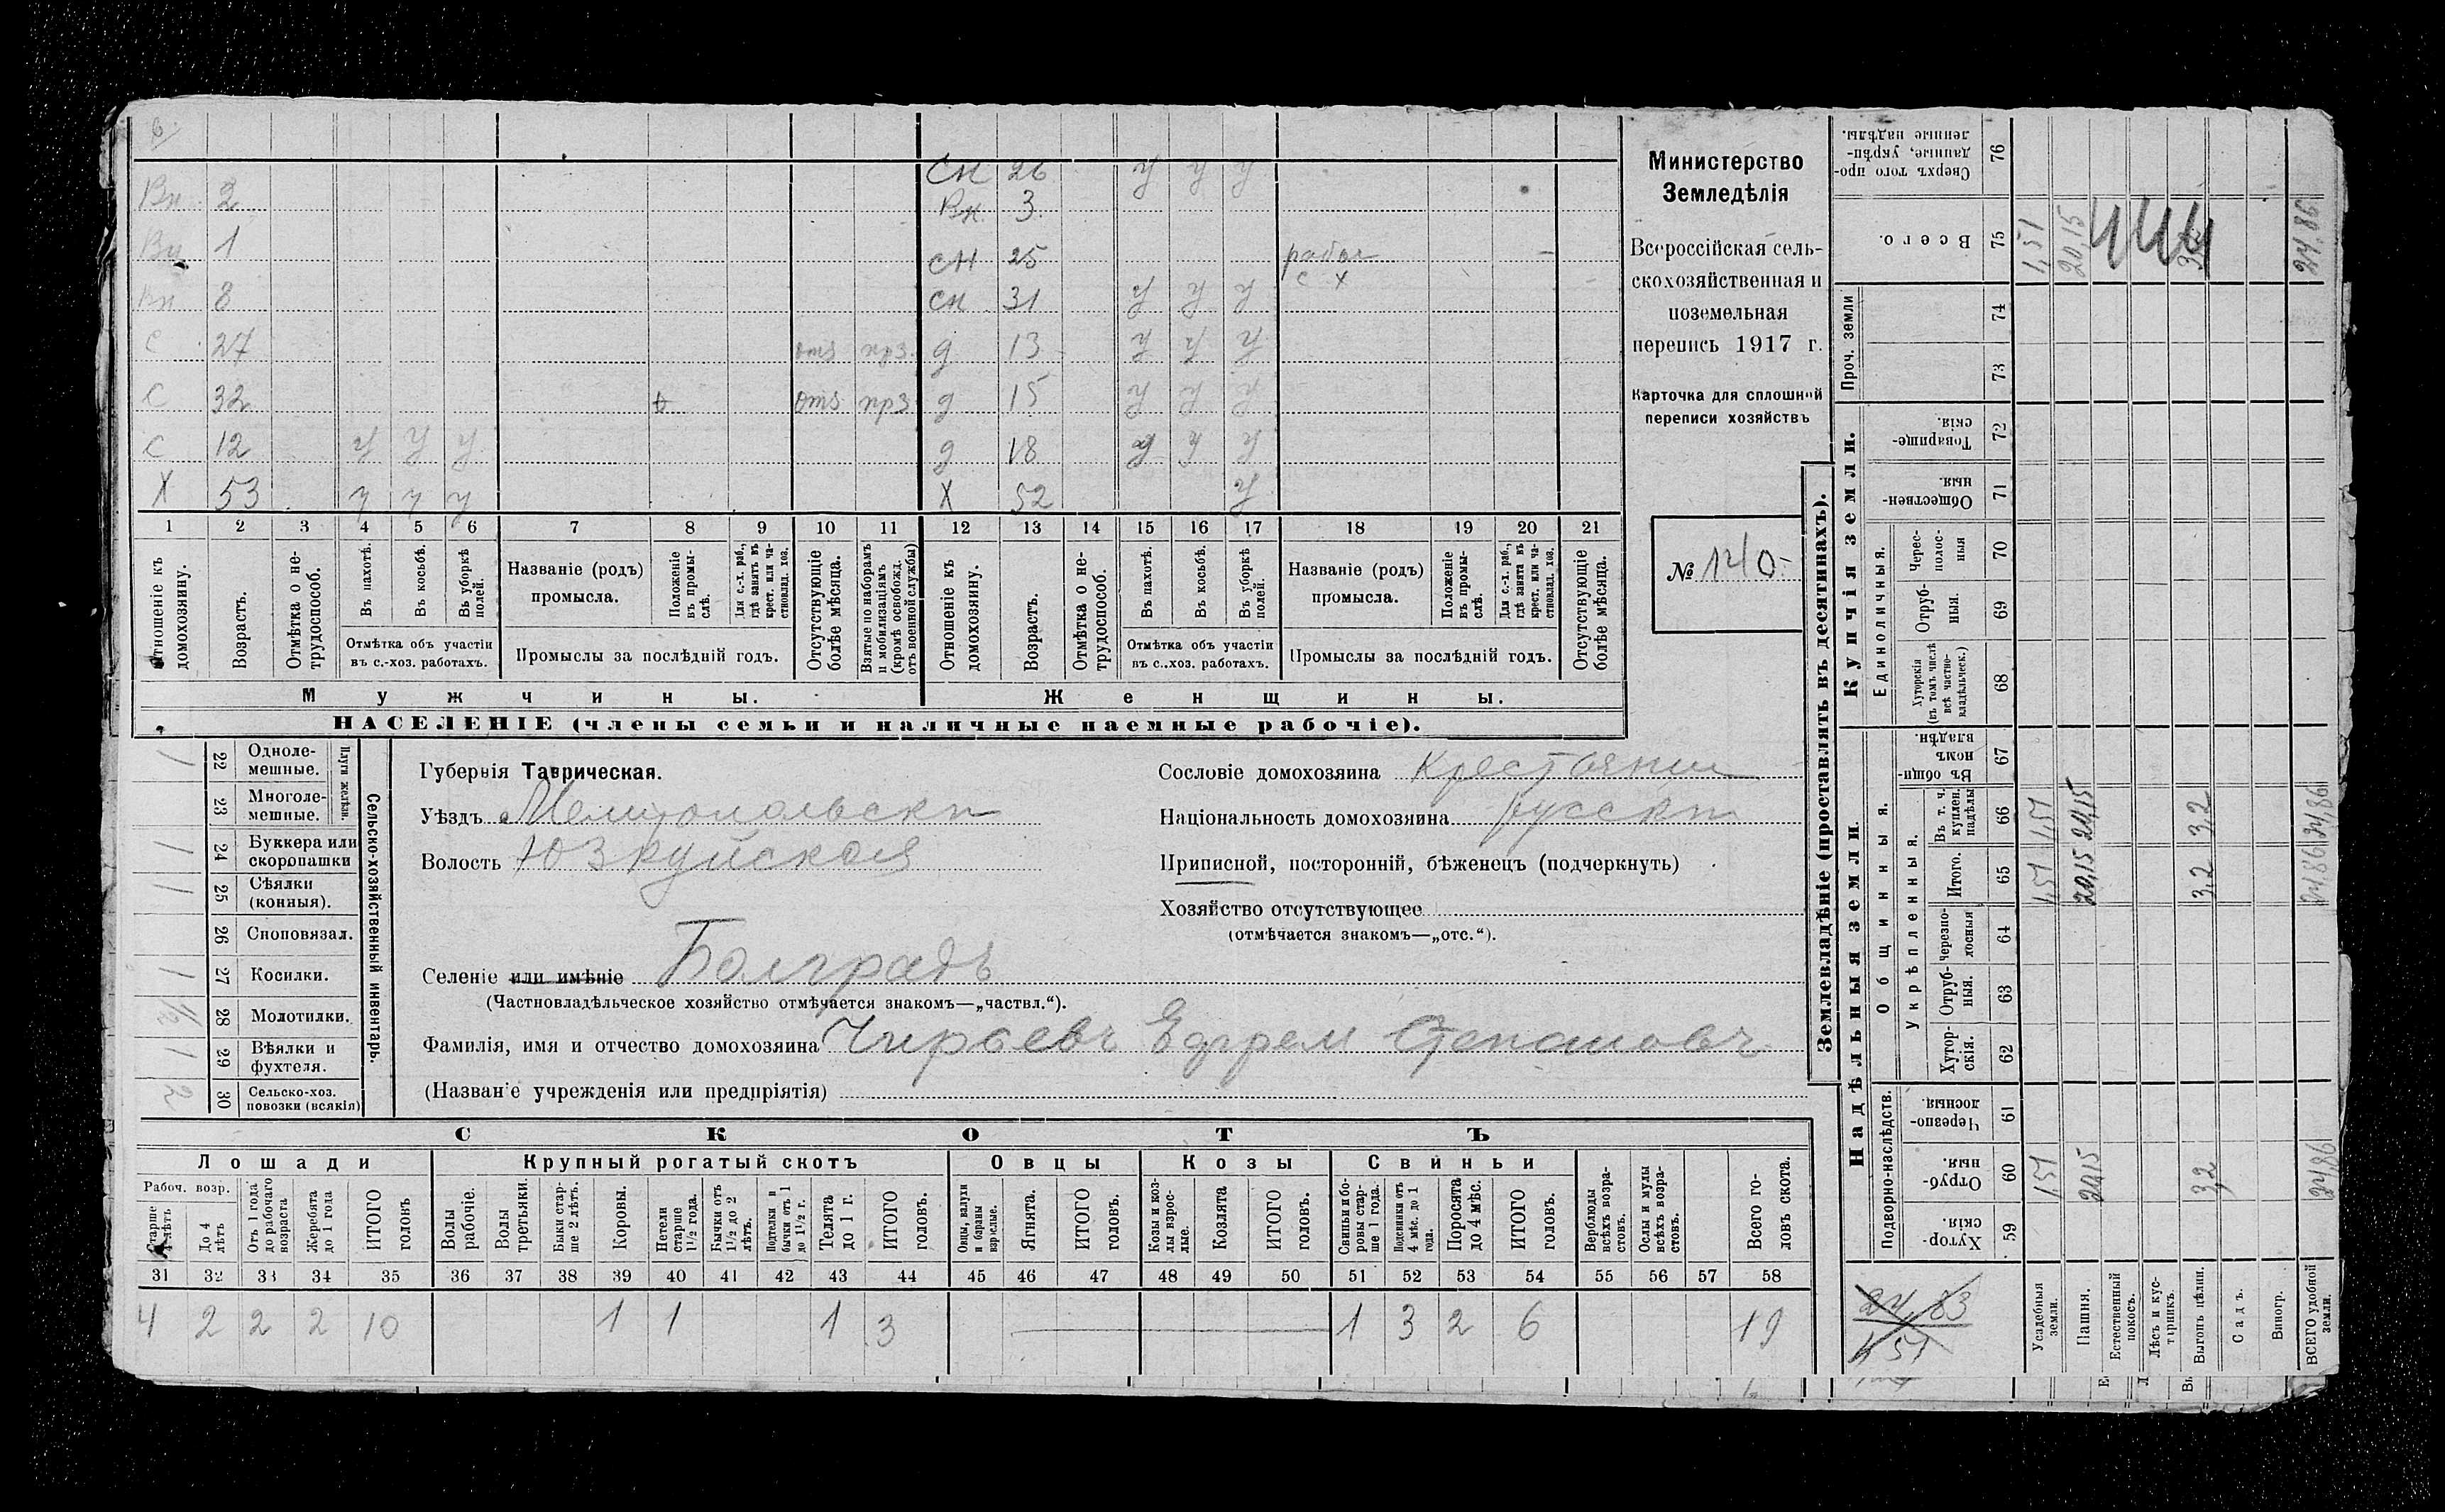 6
СН 26 У У У
Вн 2 Вн. 3
Вн 1 СН 25 рабо с х
Вн 8 СН 31 У У У
С 27 отз прз д 13 У У У
С 32 отз прз д 15 У У У
С 12 У У У д 18 У У У
Х 53 У У У Х 52 У
1 2 3 4 5 6 7 8 9 10 11 12 13 14 15 16 17 18 19 20 21
Отношеніе къ домохозяину.
Возрастъ.
Отмѣтка о не-
трудоспособ.
Въ пахотѣ.
Въ косьбѣ.
Въ уборкѣ
полей.
Отмѣтка объ участіи
въ с.-хоз. работахъ.
Названіе (родъ)
промысла.
Положеніе
въ промы-
слѣ.
Для с.-х. раб.,
гдѣ занятъ въ
крест. или ча-
стновлад. хоз.
Промыслы за послѣдній годъ.
Отсутствующіе
болѣе мѣсяца.
Взятые по наборамъ
и мобилизаціямъ
(кромѣ освобожд.
отъ военной службы)
Отношеніе къ
домохозяину.
Возрастъ.
Отмѣтка о не-
трудоспособ.
Въ пахотѣ.
Въ косьбѣ.
Въ уборкѣ
полей.
Отмѣтка объ участіи
въ с.-хоз. работахъ.
Названіе (родъ)
промысла.
Положеніе
въ промы-
слѣ.
Для с.-х. раб.,
гдѣ занята въ
крест. или ча-
стновлад. хоз.
Промыслы за послѣдній годъ.
Отсутствующіе
болѣе мѣсяца.
Мужчины. Женщины.
НАСЕЛЕНІЕ (члены семьи и наличные наемные рабочіе).
Министерство
Земледѣлія
Всероссійская сель-
скохозяйственная и
поземельная
перепись 1917 г.
Карточка для сплошной
переписи хозяйствъ
№ 140.
1 22 Одноле-
мешные.
23 Многоле-
мешные.
Плуги желѣзн.
1 24 Буккера или
скоропашки
1 25 Сѣялки
(конныя).
26 Сноповязал.
1 27 Косилки.
1/2 28 Молотилки.
1 29 Вѣялки и
фухтеля.
2 30 Сельско-хоз.
повозки (всякія)
Сельско-хозяйственный инвентарь.
Губернія Таврическая.
Уѣздъ Мелитопольскп
Волость Юзкуйская
Селеніе или имѣніе Болградъ
(Частновладѣльческое хозяйство отмѣчается знакомъ—„частвл.“).
Фамилія, имя и отчество домохозяина Чираевъ Ефрем Степановъ
(Названіе учрежденія или предпріятія)
Сословіе домохозяина Крестьянин
Національность домохозяина русскп
Приписной, посторонній, бѣженецъ (подчеркнуть)
Хозяйство отсутствующее
(отмѣчается знакомъ—„отс.“).
СКОТЪ
Лошади Крупный рогатый скотъ Овцы Козы Свиньи
Рабоч. возр.
Старше
4 лѣтъ
До 4
лѣтъ
Отъ 1 года
до рабочаго
возраста
Жеребята
до 1 года
ИТОГО
головъ
Волы
рабочіе.
Волы
третьяки.
Быки стар-
ше 2 лѣтъ.
Коровы.
Нетели
старше
1½ года.
Бычки отъ
1½ до 2
лѣтъ.
Подтелки и
бычки отъ 1
до 1½ г.
Телята
до 1 г.
ИТОГО
головъ.
Овцы, валухи
и бараны
взрослые.
Ягнята.
ИТОГО
головъ.
Козы и коз-
лы взрос-
лые.
Козлята
ИТОГО
головъ.
Свиньи и бо-
ровы стар-
ше 1 года.
Подсвинки отъ
4 мѣс. до 1
года.
Поросята
до 4 мѣс.
ИТОГО
головъ.
Верблюды
всѣхъ возра-
стовъ.
Ослы и мулы
всѣхъ возра-
стовъ.
Всего го-
ловъ скота.
31 32 33 34 35 36 37 38 39 40 41 42 43 44 45 46 47 48 49 50 51 52 53 54 55 56 57 58
4 2 2 2 10 1 1 1 3 1 3 2 6 19
Землевладѣніе (проставлять въ десятинахъ).
Надѣльныя земли.
Купчія земли.
Проч. земли
Подворно-наслѣдств.
Общинныя.
Укрѣпленныя.
Единоличныя.
Хутор-
скія. 59
Отруб-
ныя. 60
Черезпо-
лосныя. 61
Хутор-
скія. 62
Отруб-
ныя. 63
Черезпо-
лосныя 64
Итого. 65
Въ т. ч.
куплен.
надѣлы 66
Въ общин-
номъ
владѣн. 67
Хуторскія
(въ томъ числѣ
всѣ частно-
владѣльческ.) 68
Отруб-
ныя. 69
Черес-
полос-
ныя 70
Обществен-
ныя. 71
Товарище-
скія. 72
73
74
Всего. 75
Сверхъ того про-
данные, укрѣп-
ленные надѣлы. 76
24,83
1,51
Усадебныя
земли. 1,51 1,51 1,51 1,51
Пашня. 20,15 20,15 20,15 20,15
Естественный
покосъ.
Лѣсъ и кус-
тарникъ.
Выгонъ цѣлин. 3,2 3,2 3,2 3,2
Садъ.
Виногр.
ВСЕГО удобной
земли. 24,86 24,86 24,86 24,86